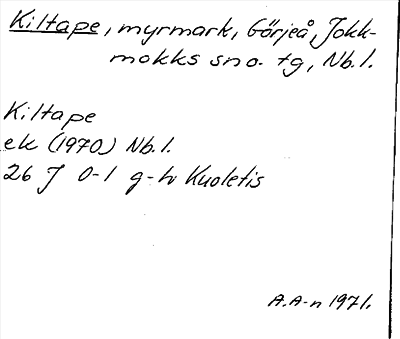 Kiltape, myrmark, Görjeå, Jokk-
mokks sno. tg, Nb.l.
Kiltape
ek (1970) Nb.l.
26 J 0-1 g-h Kuoletis
A.A-n 1971.